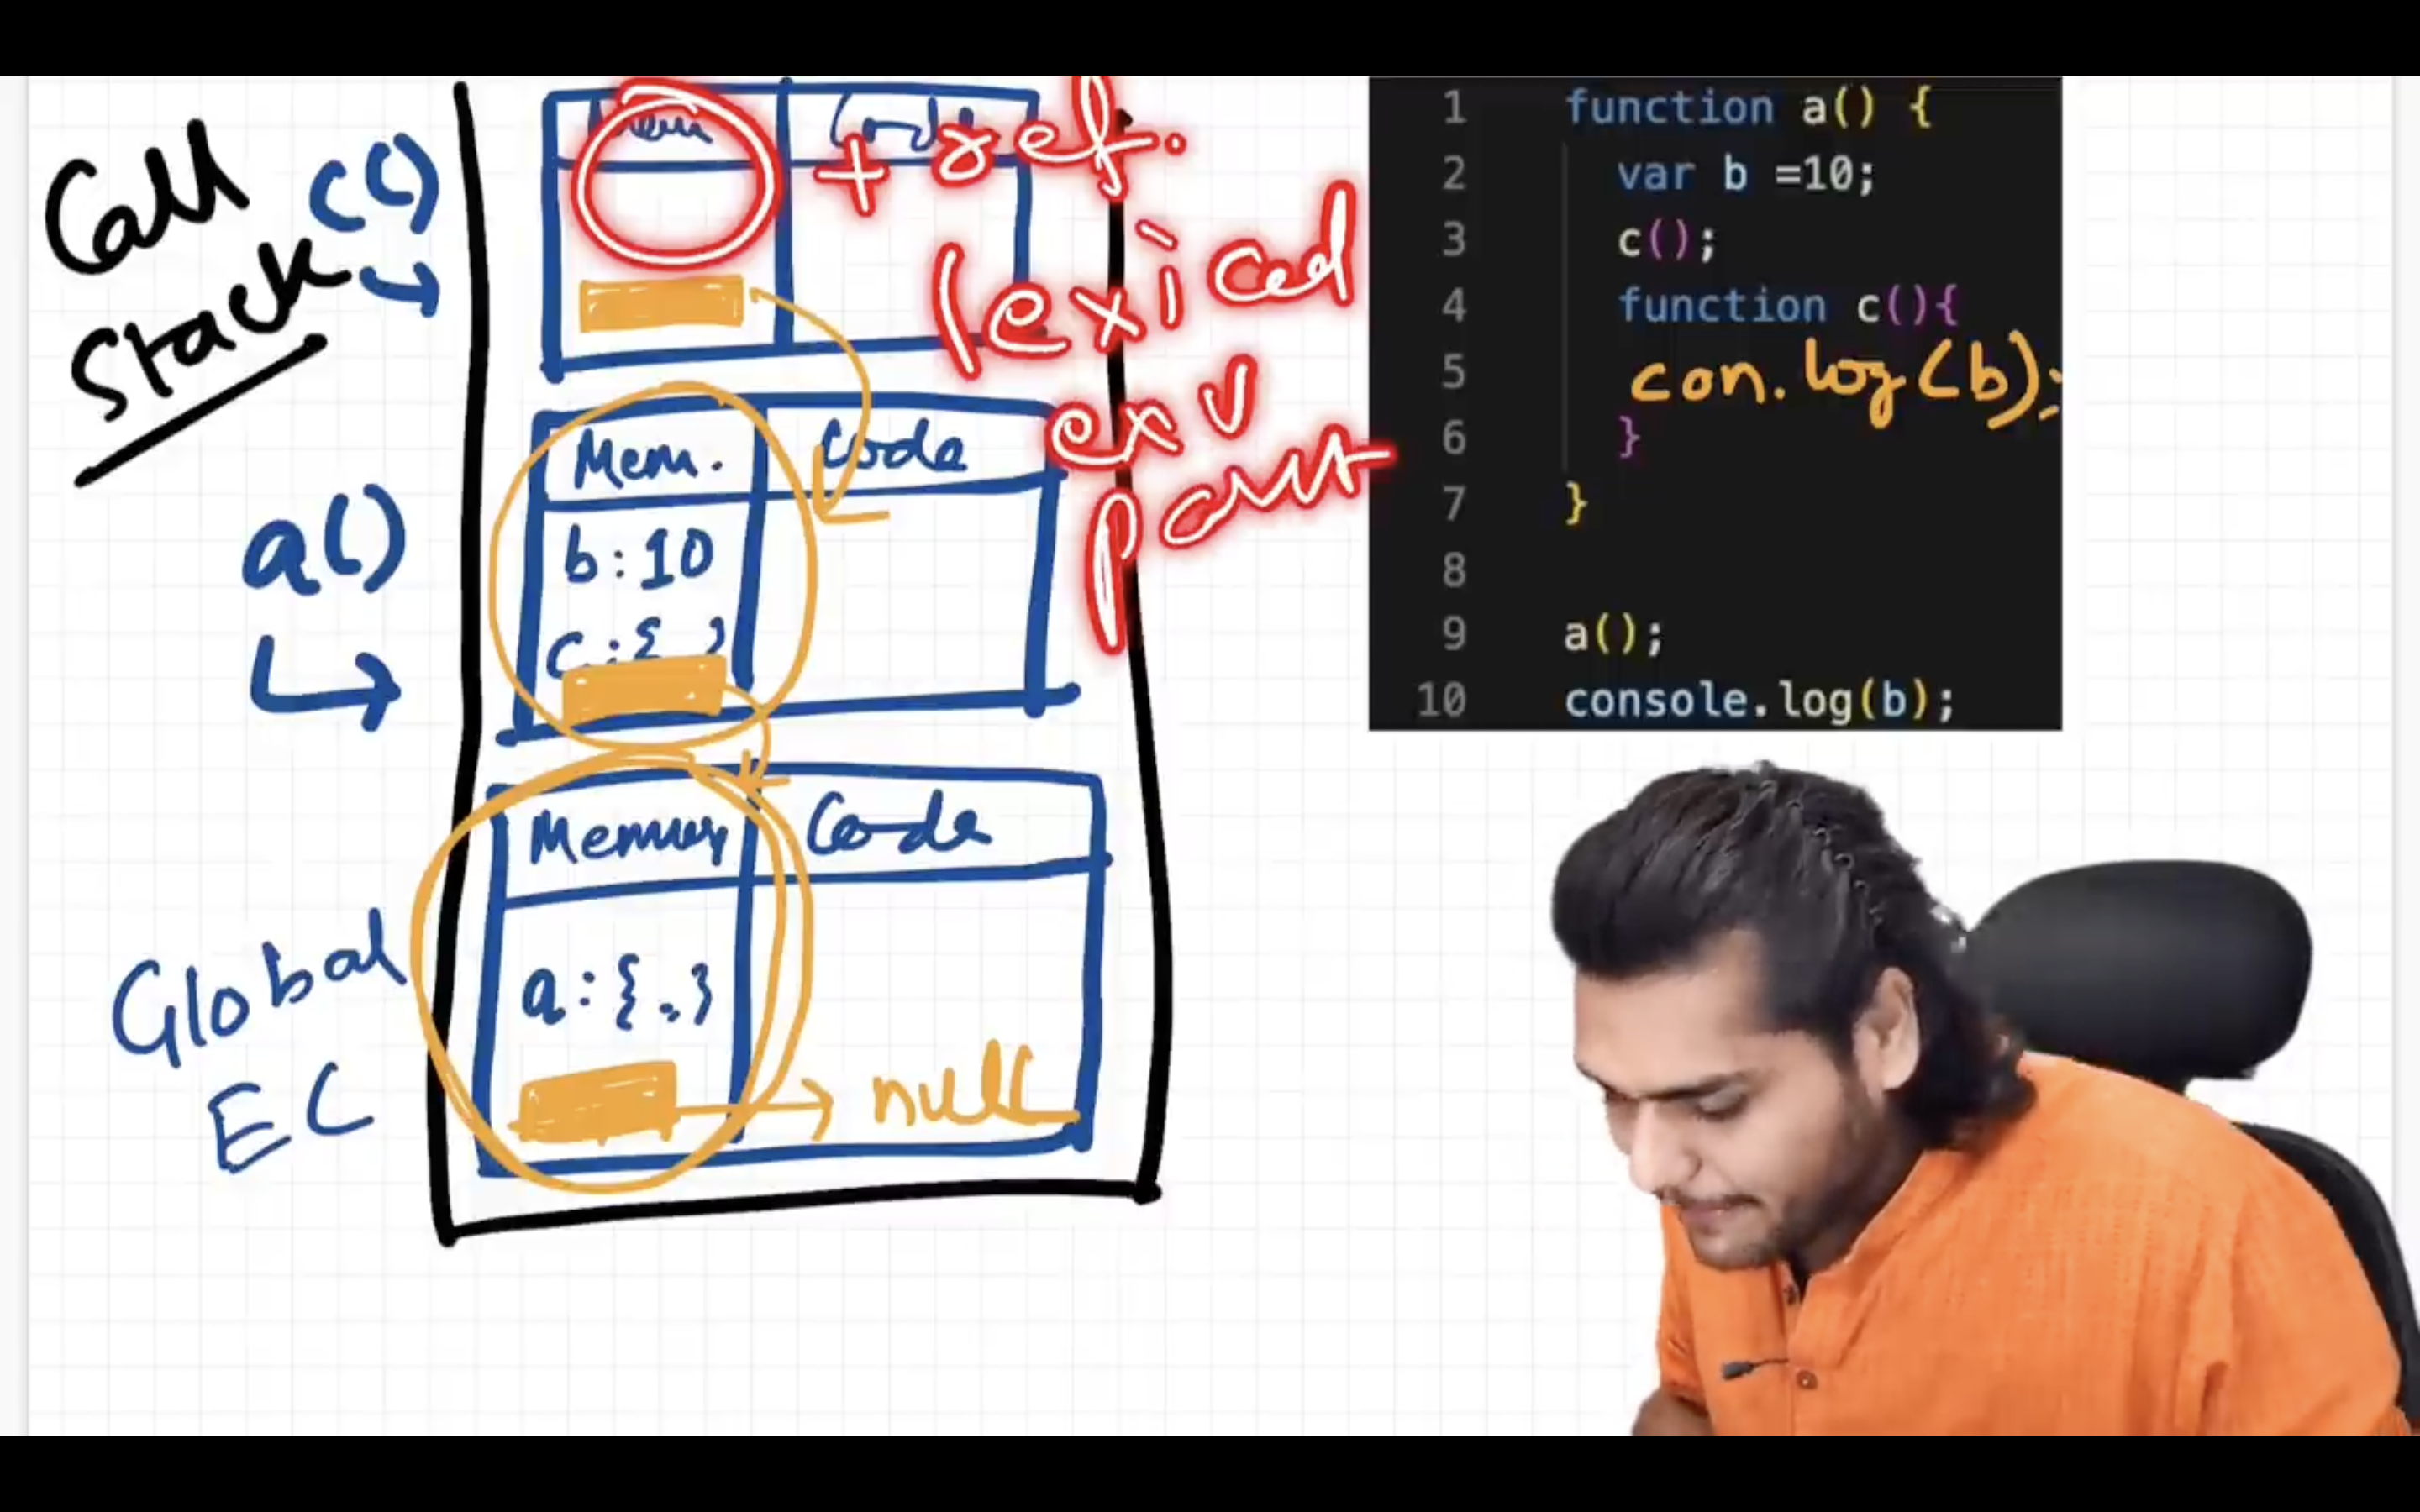 Call
Stack
c()
Mem
Code
+ ref.
lexical
env
part
a()
Mem.
Code
b : 10
c : {
Global
EC
Memory
Code
a : { . }
null
1 function a() {
2 var b =10;
3 c();
4 function c(){
5 con.log(b);
6 }
7 }
8
9 a();
10 console.log(b);